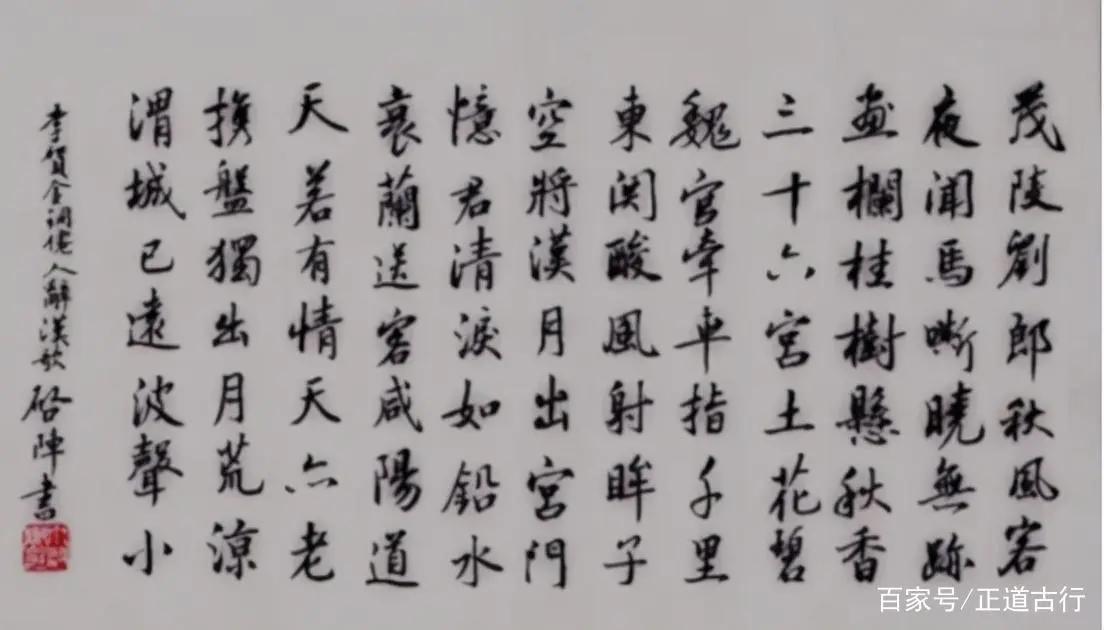 茂陵劉郎秋風客
夜聞馬嘶曉無跡
畫欄桂樹懸秋香
三十六宮土花碧
魏官牽車指千里
東関酸風射眸子
空將漢月出宮門
憶君清淚如鉛水
衰蘭送客咸陽道
天若有情天亦老
携盤獨出月荒涼
渭城已遠波聲小
李賀金銅仙人辭漢歌 啓陣書
百家号/正道古行